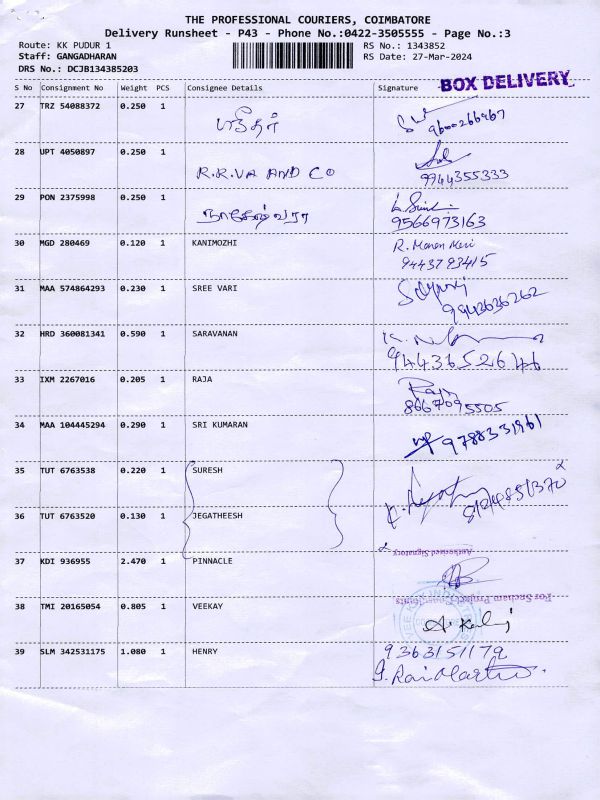 THE PROFESSIONAL COURIERS, COIMBATORE
Delivery Runsheet - P43 - Phone No.:0422-3505555 - Page No.:3
Route: KK PUDUR 1 RS No.: 1343852
Staff: GANGADHARAN RS Date: 27-Mar-2024
DRS No.: DCJB134385203
BOX DELIVERY
S No Consignment No Weight PCS Consignee Details Signature
27 TRZ 54088372 0.250 1
9600266967
28 UPT 4050897 0.250 1
R.R.VA AND CO
9944355333
29 PON 2375998 0.250 1
9566973163
30 MGD 280469 0.120 1 KANIMOZHI
9443793415
31 MAA 574864293 0.230 1 SREE VARI
9943636262
32 HRD 360081341 0.590 1 SARAVANAN
9443652646
33 IXM 2267016 0.205 1 RAJA Raja
8667095505
34 MAA 104445294 0.290 1 SRI KUMARAN
9788331961
35 TUT 6763538 0.220 1 SURESH
36 TUT 6763520 0.130 1 JEGATHEESH
Authorised Signatory
37 KDI 936955 2.470 1 PINNACLE
38 TMI 20165054 0.805 1 VEEKAY
39 SLM 342531175 1.080 1 HENRY 9363151179